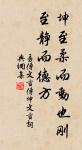 坤至柔而動也剛
至靜而德方
易傳文言傳坤文言詞
典網集